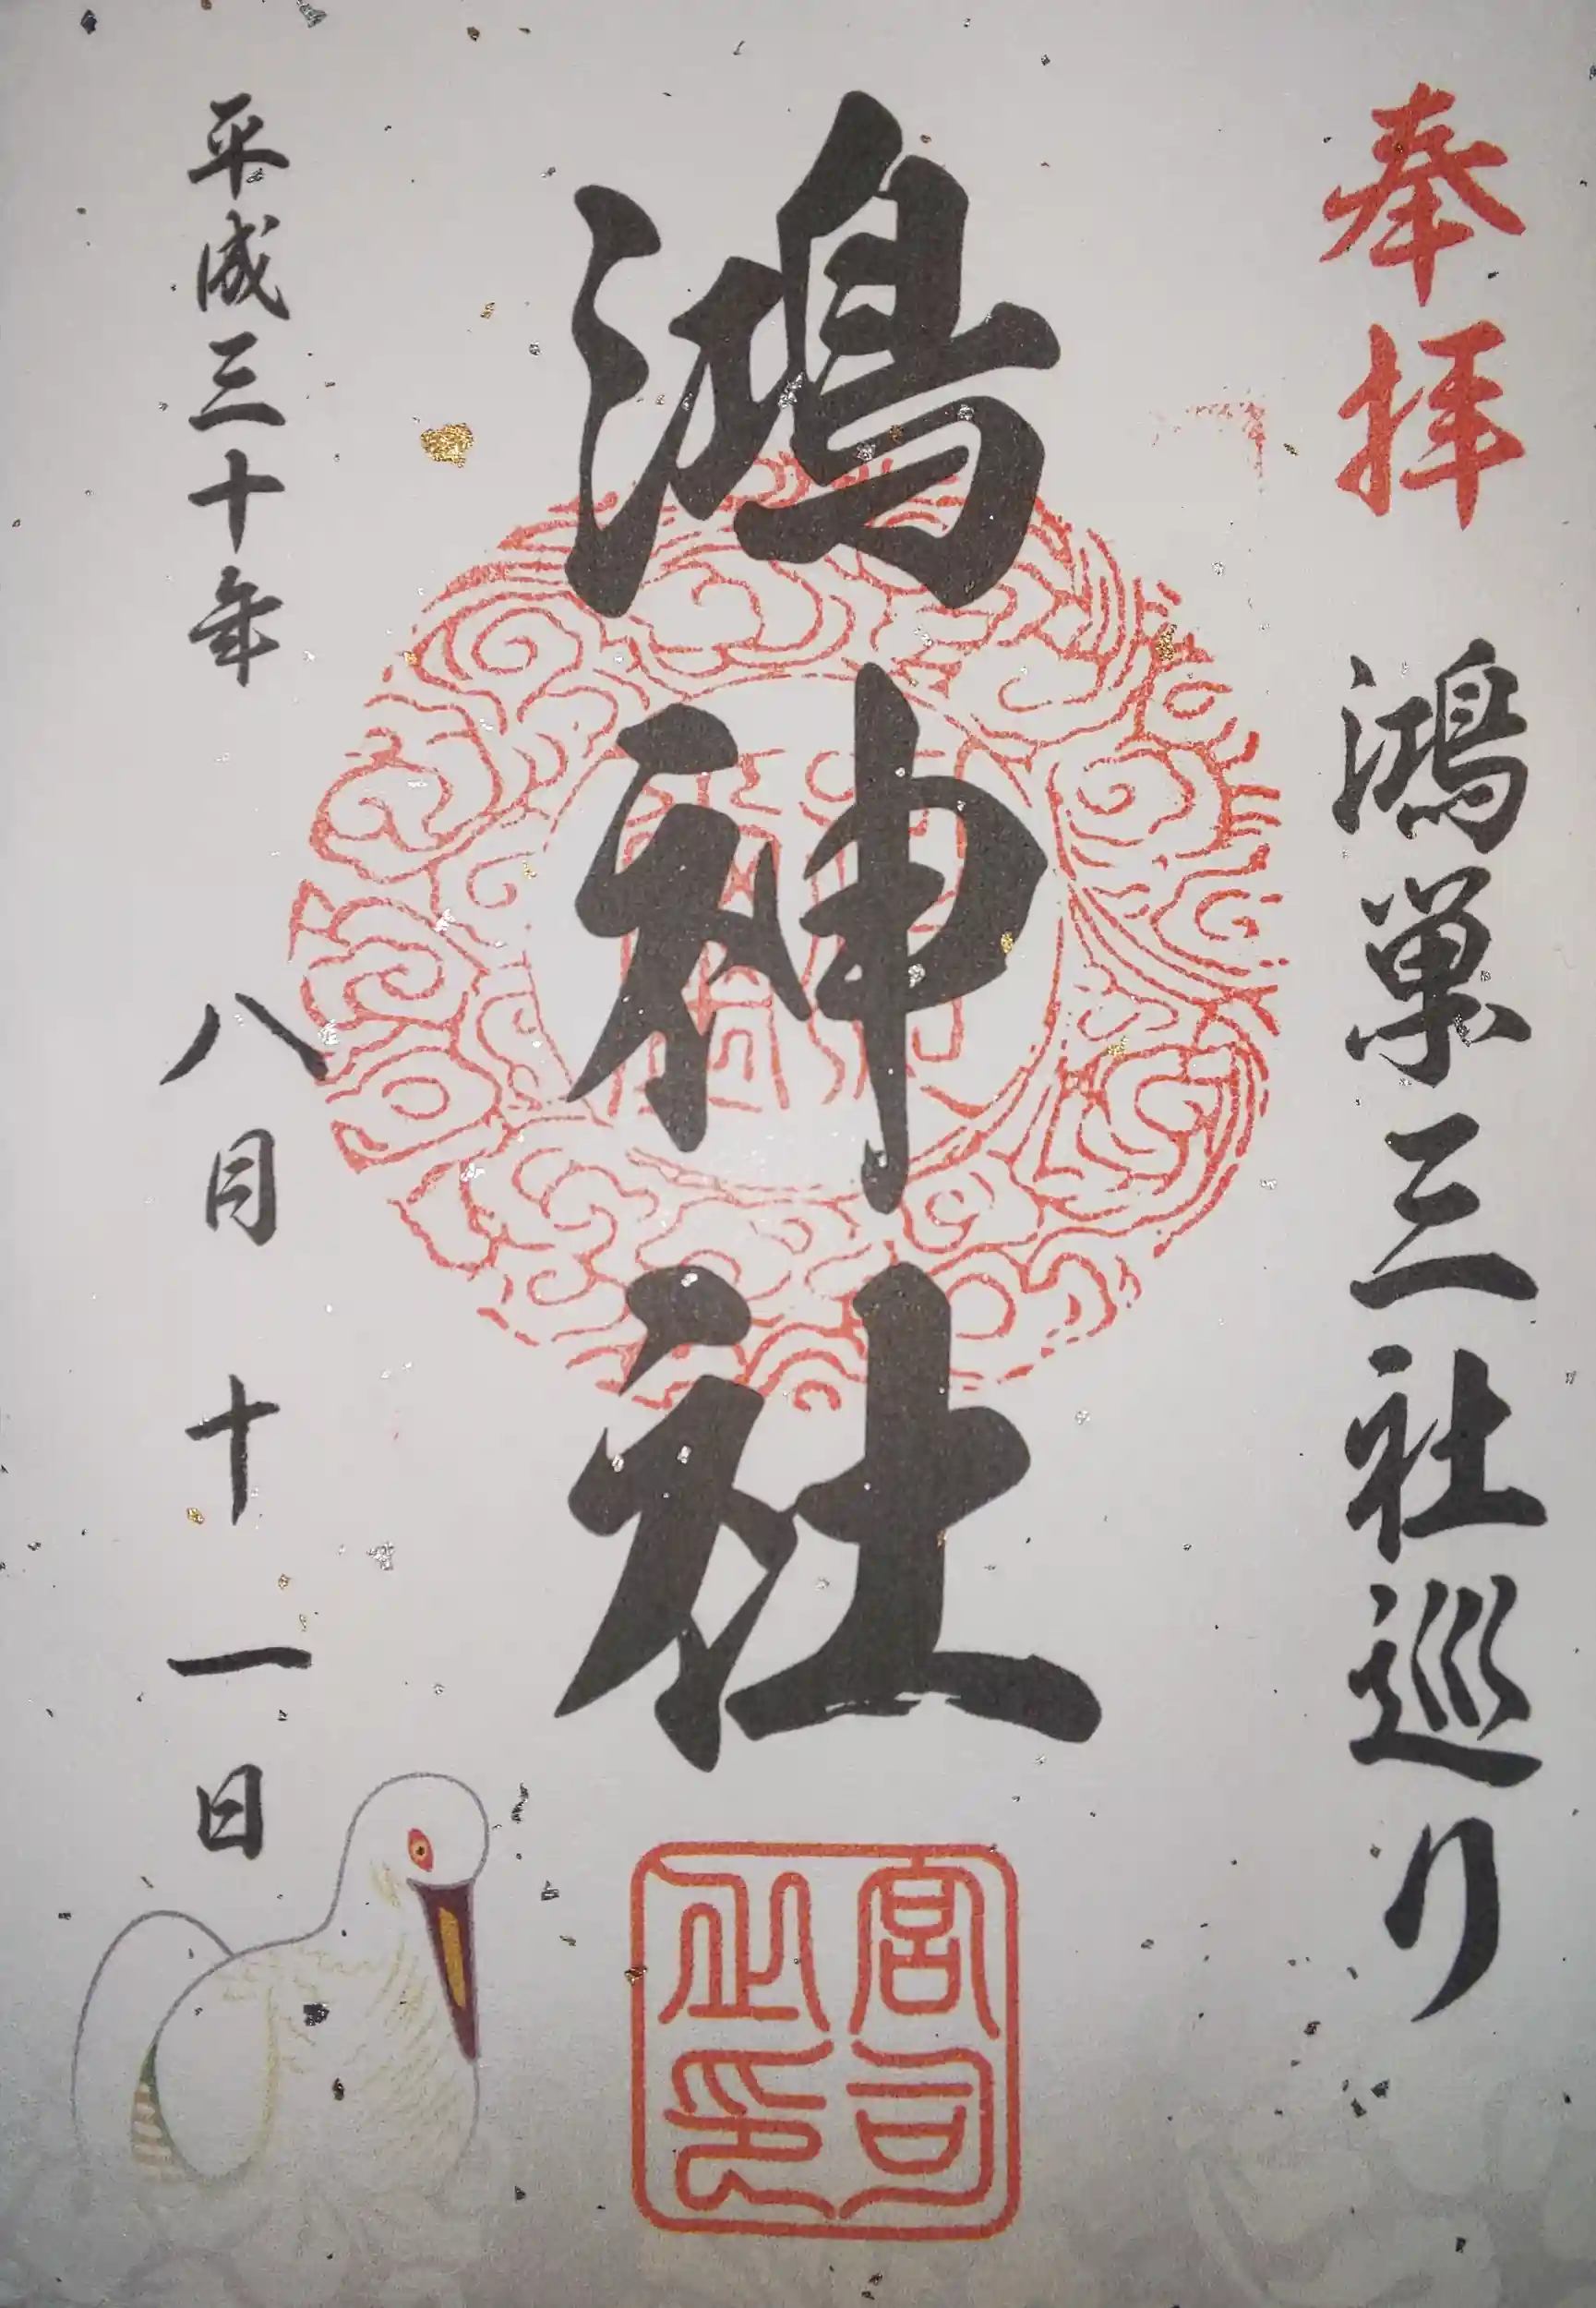 奉拝
鴻巣三社巡り
鴻神社
宮司
之印
平成三十年
八月十一日